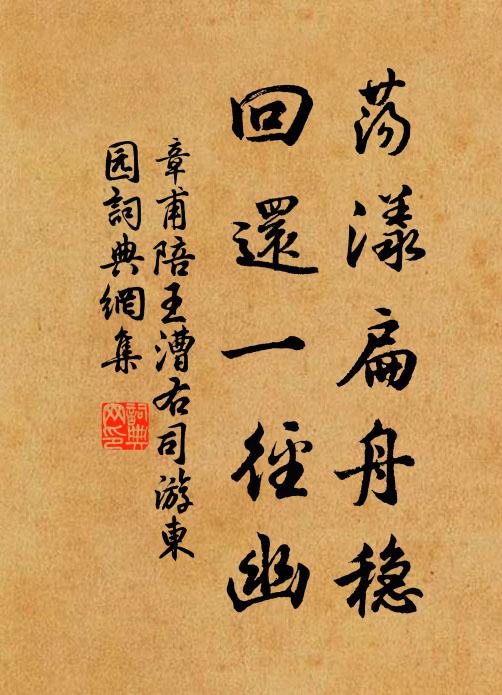 荡漾扁舟稳
回還一徑幽
章甫陪王漕右司游東
园詞典網集
詞典
网印